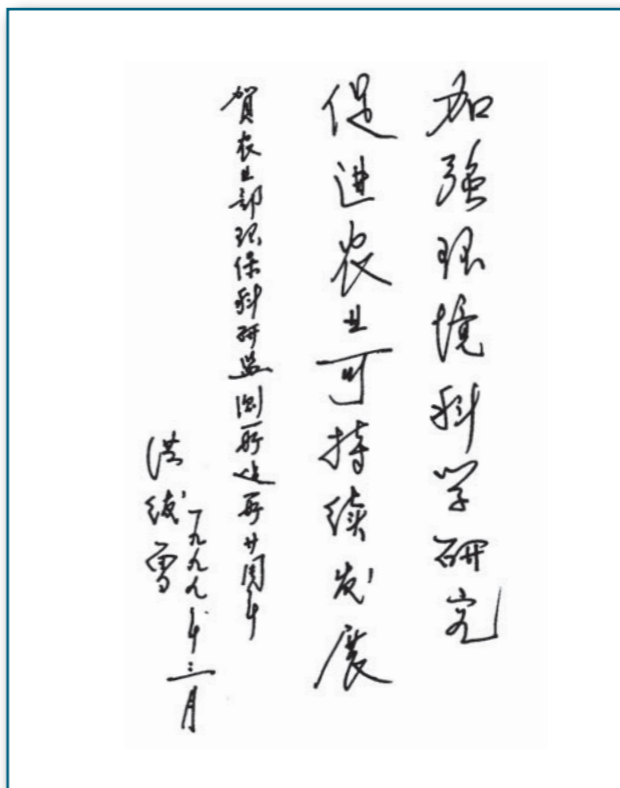 加强环境科学研究
促进农业可持续发展
賀农业部环保科研监测所建所廿周年
洪绂曾
一九九九年三月